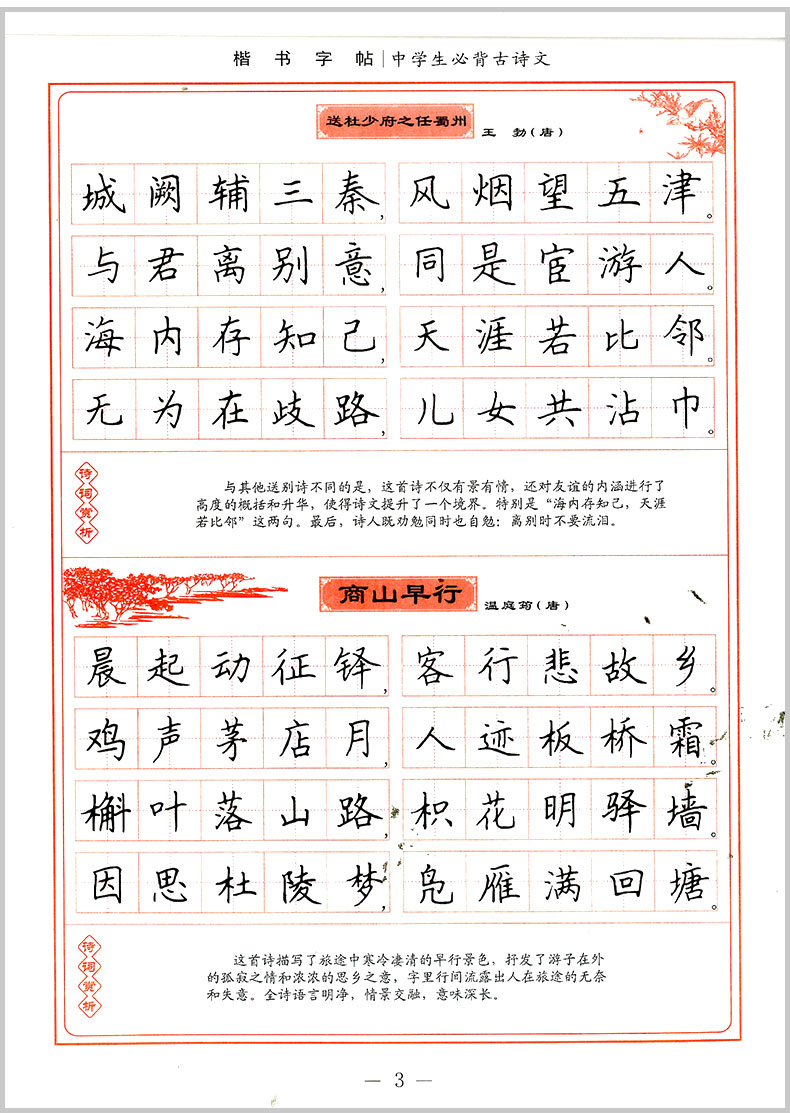 楷书字帖|中学生必背古诗文
送杜少府之任蜀州 王勃(唐)
城阙辅三秦, 风烟望五津。
与君离别意, 同是宦游人。
海内存知己, 天涯若比邻。
无为在歧路, 儿女共沾巾。
诗词赏析
与其他送别诗不同的是，这首诗不仅有景有情，还对友谊的内涵进行了
高度的概括和升华，使得诗文提升了一个境界。特别是“海内存知己，天涯
若比邻”这两句。最后，诗人既劝勉同时也自勉：离别时不要流泪。
商山早行 温庭筠(唐)
晨起动征铎, 客行悲故乡。
鸡声茅店月, 人迹板桥霜。
槲叶落山路, 枳花明驿墙。
因思杜陵梦, 凫雁满回塘。
诗词赏析
这首诗描写了旅途中寒冷凄清的早行景色，抒发了游子在外
的孤寂之情和浓浓的思乡之意，字里行间流露出人在旅途的无奈
和失意。全诗语言明净，情景交融，意味深长。
— 3 —